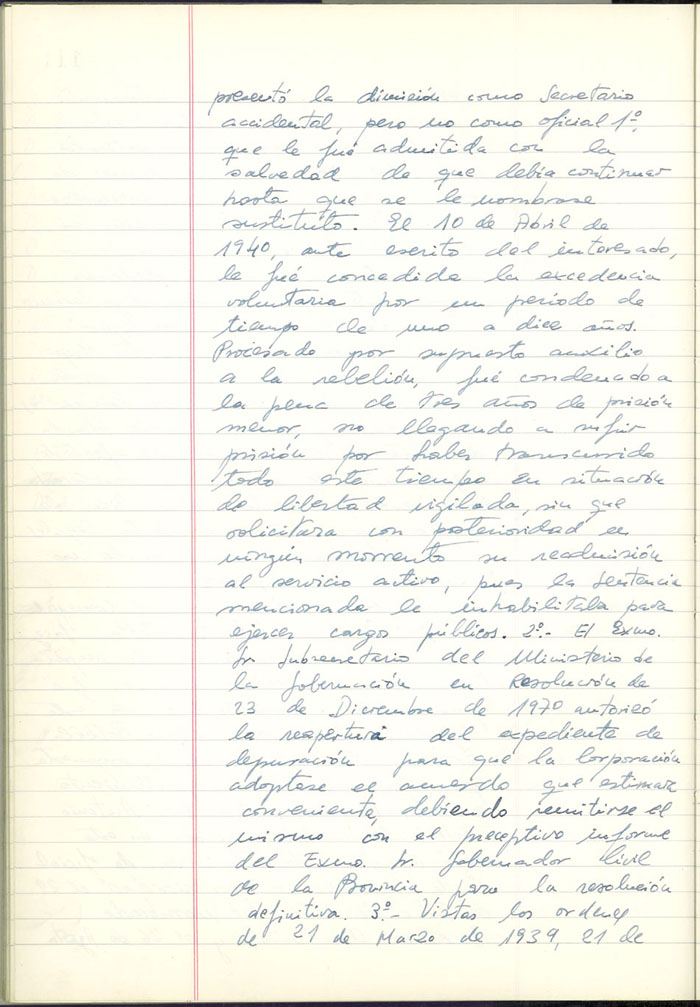 presentó la dimisión como Secretario
accidental, pero no como oficial 1º,
que le fué admitida con la
salvedad de que debía continuar
hasta que se le nombrase
sustituto. El 10 de Abril de
1940, ante escrito del interesado,
le fué concedida la excedencia
voluntaria por un período de
tiempo de uno a diez años.
Procesado por supuesto auxilio
a la rebelión, fué condenado a
la pena de tres años de prisión
menor, no llegando a sufrir
prisión por haber transcurrido
todo este tiempo en situación
de libertad vigilada, sin que
solicitara con posterioridad en
ningún momento su readmisión
al servicio activo, pues la Sentencia
mencionada le inhabilitaba para
ejercer cargos públicos. 2º.- El Exmo.
Sr Subsecretario del Ministerio de
la Gobernación en Resolución de
23 de Diciembre de 1970 autorizó
la reapertura del expediente de
depuración para que la Corporación
adoptase el acuerdo que estimare
conveniente, debiendo remitirse el
mismo con el preceptivo informe
del Exmo. Sr. Gobernador Civil
de la Provincia para la resolución
definitiva. 3º.- Vistas las ordenes
de 21 de Marzo de 1939, 21 de